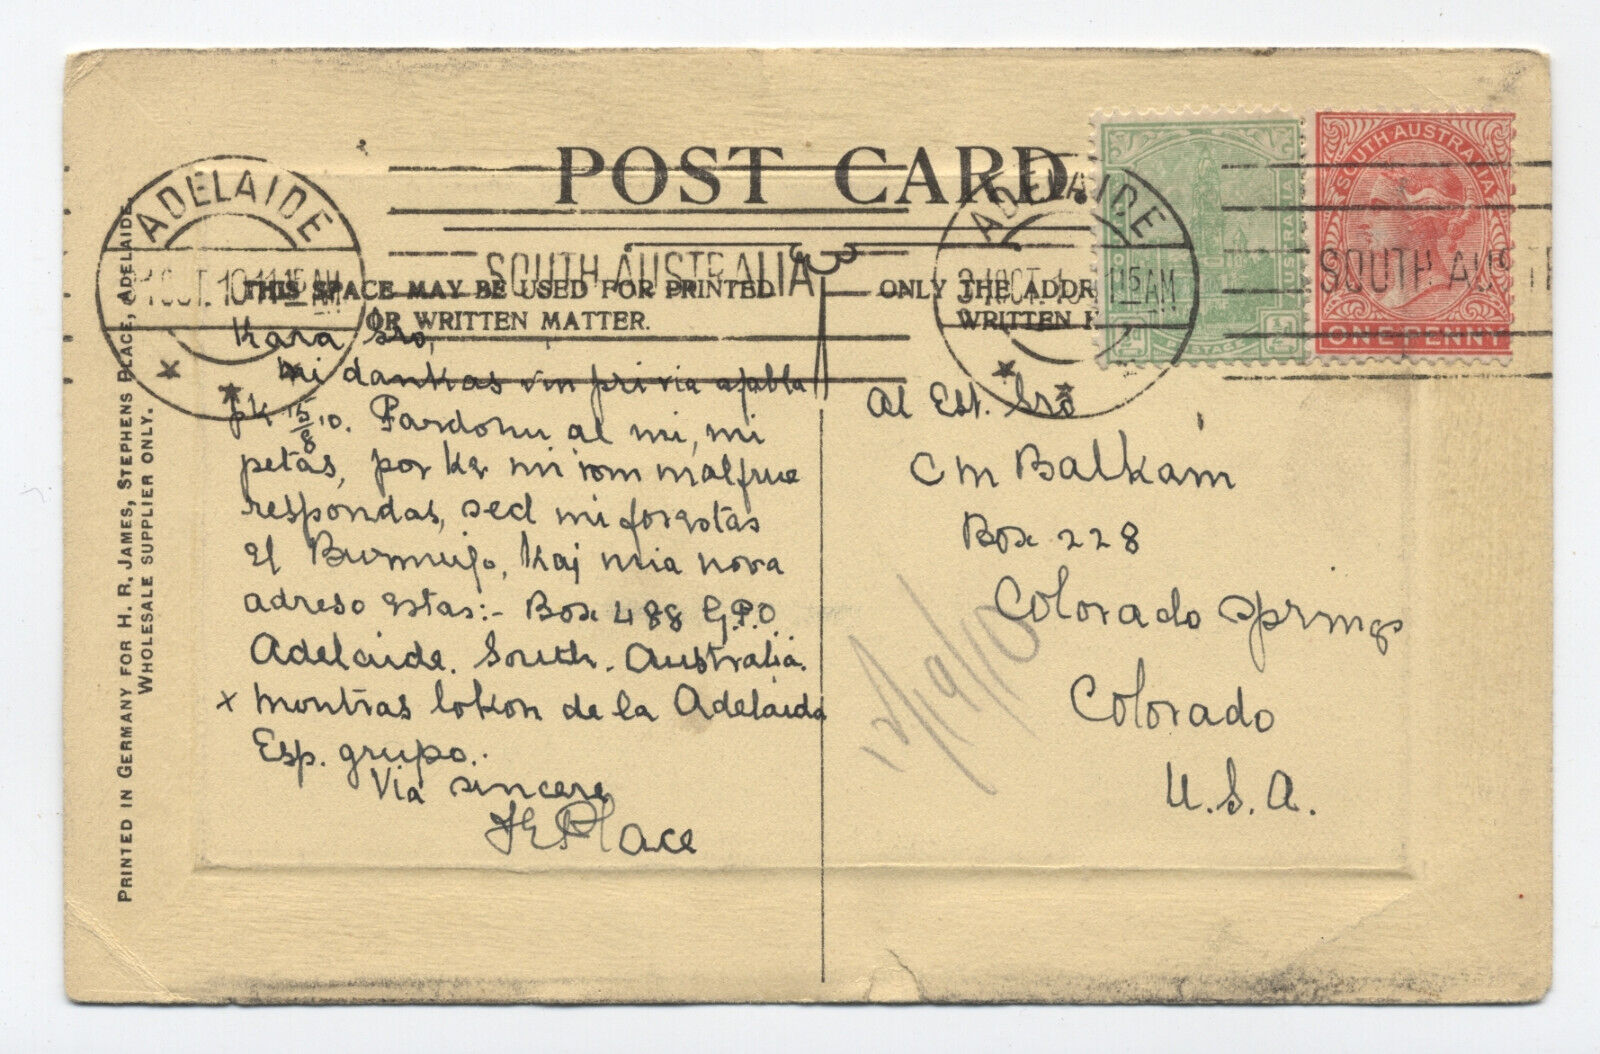 POST CARD.
THIS SPACE MAY BE USED FOR PRINTED
OR WRITTEN MATTER.
ONLY THE ADDR
WRITTEN
ADELAIDE
OCT.10 11 15 AM
SOUTH AUSTRALIA
ADELAIDE
OCT.1 1115AM
SOUTH AUST
SOUTH AUSTRALIA
ONE PENNY
POSTAGE
PRINTED IN GERMANY FOR H. R. JAMES, STEPHENS PLACE, ADELAIDE.
WHOLESALE SUPPLIER ONLY.
Kara Sro,
Mi dankas vin pri via afabla
pk 15/8/10. Pardonu al mi, mi
petas, por ke mi iom malfrue
respondas, sed mi forestas
el kaj mia nova
adreso estas:- Box 488 G.P.O.
Adelaide. South. Australia.
x montras lokon de la Adelaida
Esp. grupo..
Via sincere
Place
Al Est. Sro
Box 228
Colorado Springs
Colorado
U.S.A.